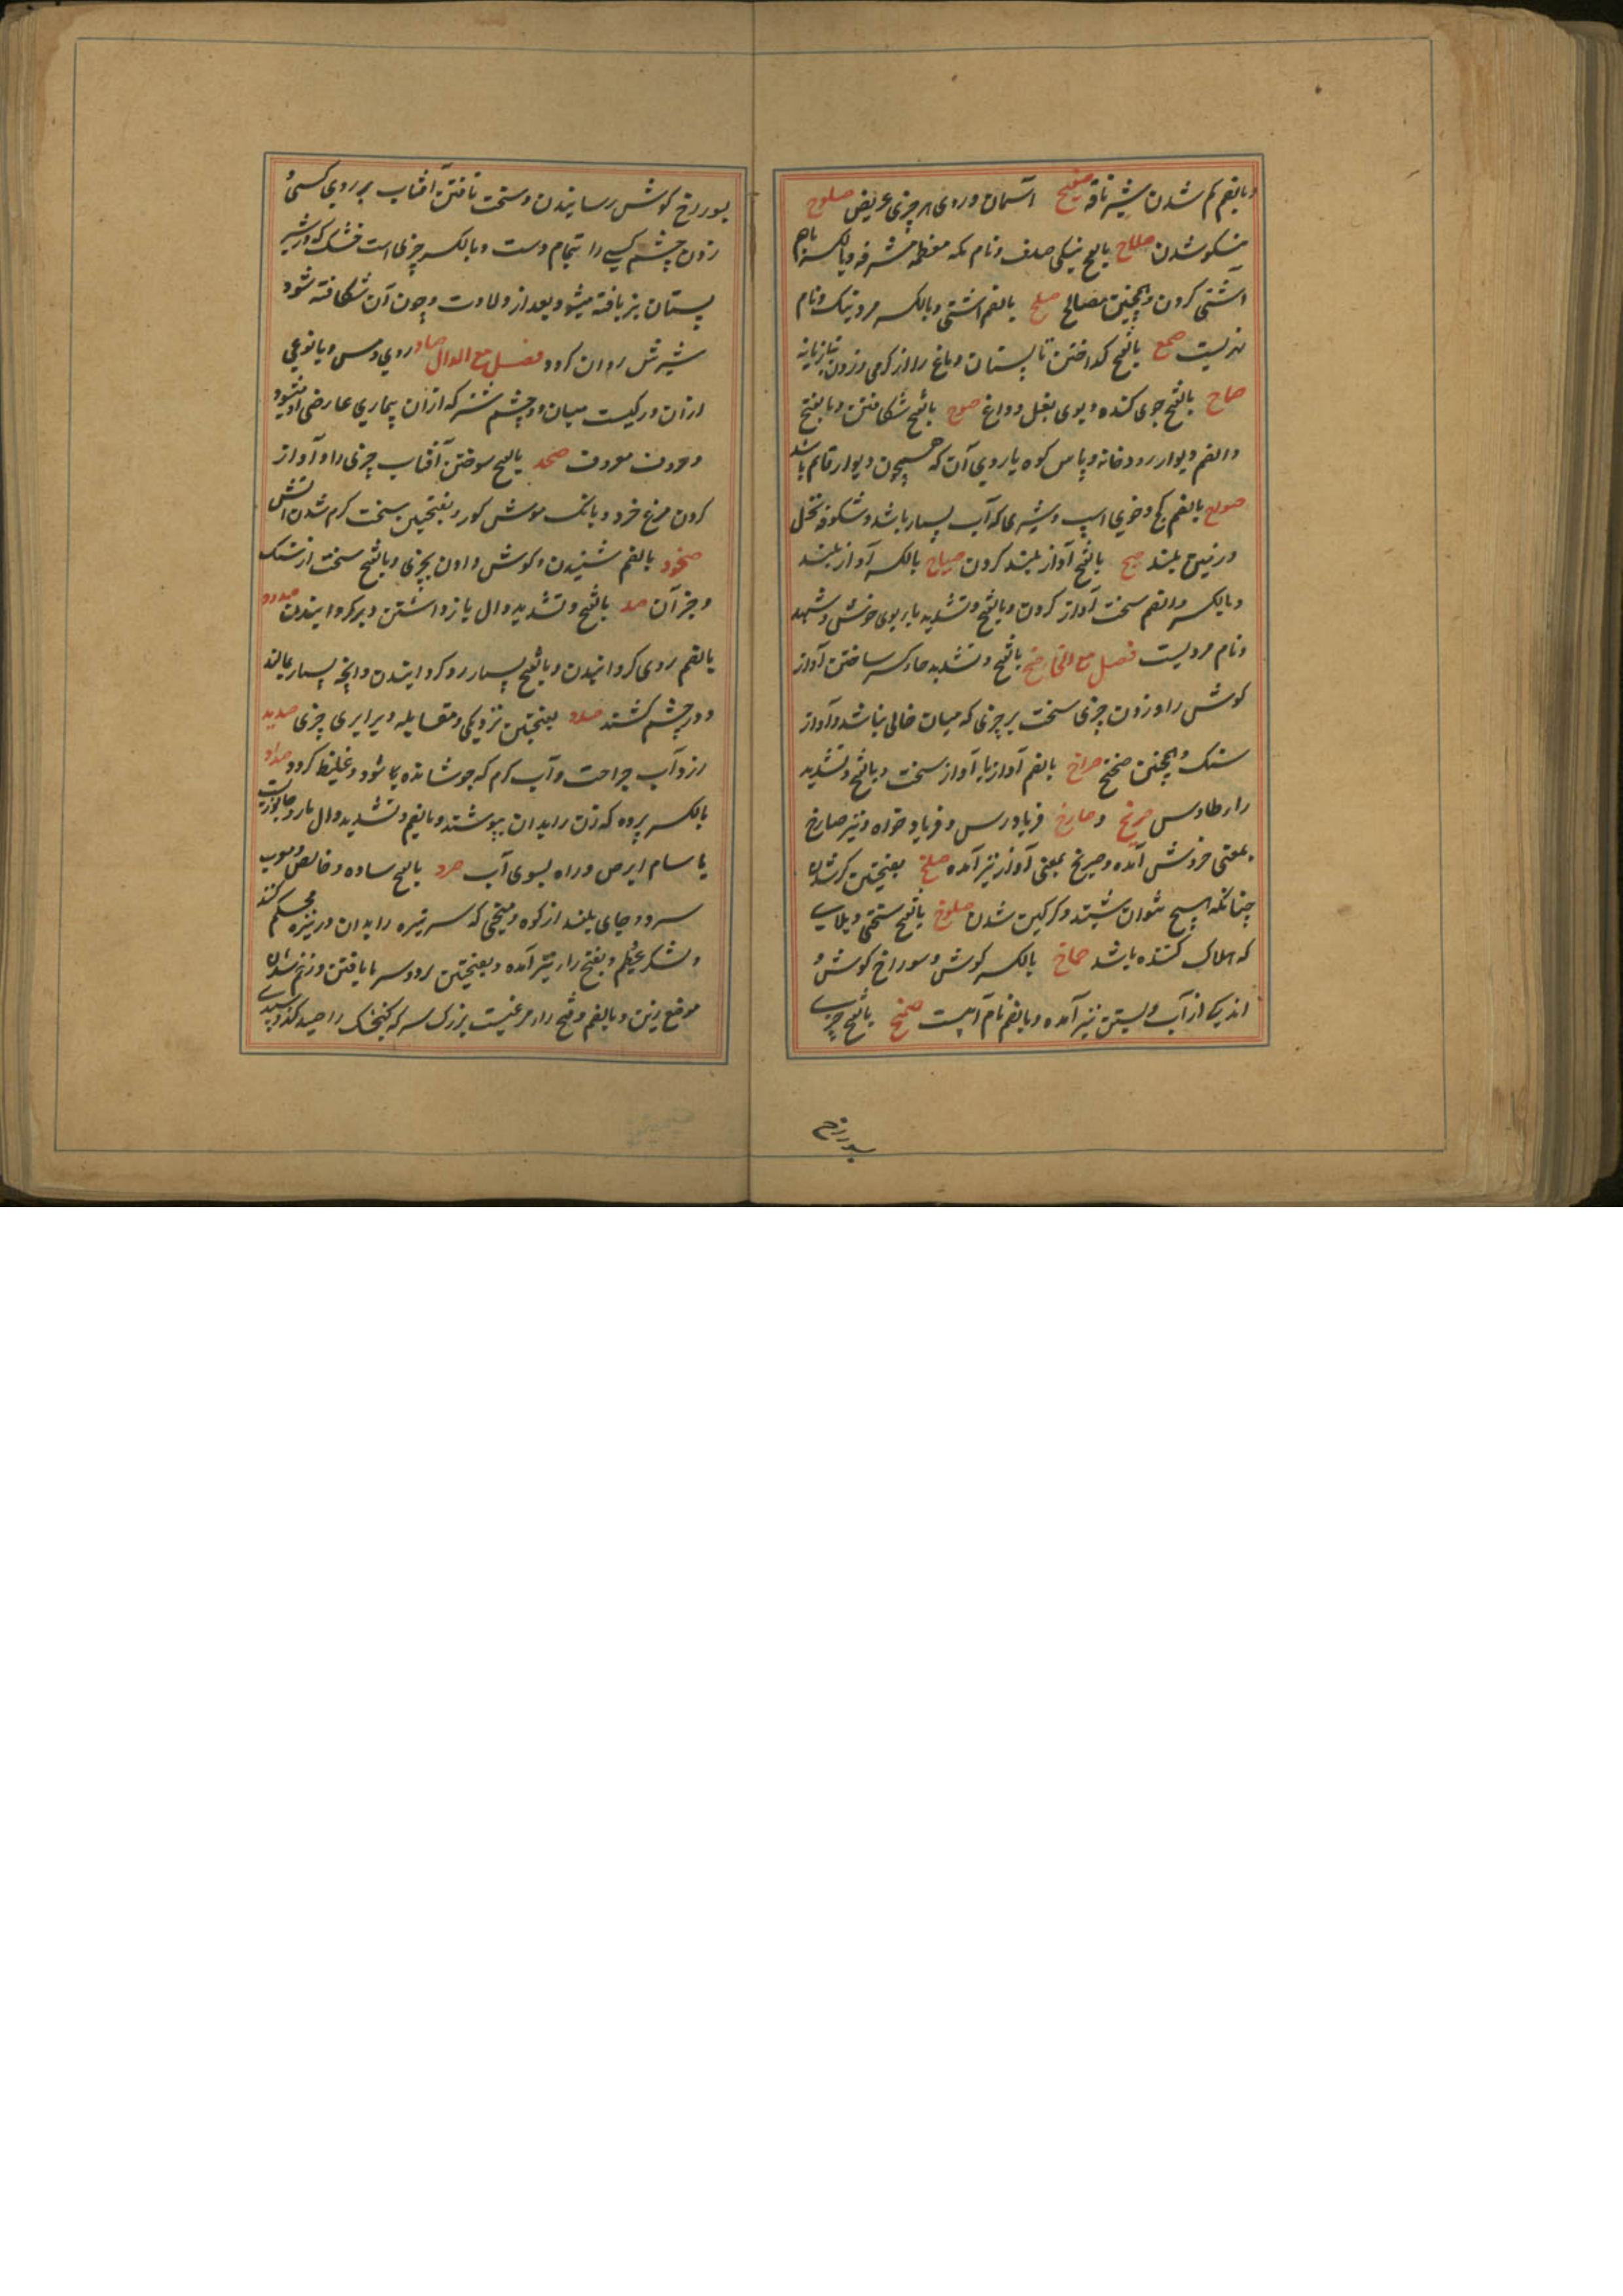 وبالضم کم شدن شیر ناقه صفیح آسمان و روی هر چیزی عریض صلوح
نیکو شدن صلاح بالفتح نیکی ضد فساد و نام مکه معظمه مشرفه وبالکسر باهم
آشتی کردن وهمچنین مصالح صلح بالضم آشتی وبالکسر مرد نیک و نام
نهریست صمح بالفتح گداختن تابستان دماغ را از گرمی و زدن بتازیانه
صماح بالضم خوی گنده و بوی بغل و داغ صوح بالفتح شکافتن وبالفتح
والضم دیوار رودخانه و پاس کوه یا روی آن که همچون دیوار قائم باشد
بالضم گچ و خوی اسپ و شیری که آب بسیار باشد و شکوفه نخل
و زمین بلند صیح بالفتح آواز بلند کردن صیاح بالکسر آواز بلند
وبالکسر والضم سخت آواز کردن وبالفتح وتشدید یا بوی خوش و شهد
و نام مردیست فصل مع الخا صخ بالفتح وتشدید خا کر ساختن آواز
گوش را و زدن چیزی سخت بر چیزی که میان خالی نباشد و آواز
سنگ وهمچنین صخیخ صراخ بالضم آواز یا آواز سخت وبالفتح وتشدید
را طاوس صریخ و صارخ فریادرس و فریاد خواه و نیز صارخ
بمعنی خروش آمده و صریخ بمعنی آواز نیز آمده صلخ بفتحتین کر شدن
چنانکه هیچ نتوان شنید و گرگین شدن صلوخ بالفتح سختی و بلای
که هلاک کننده باشد صماخ بالکسر گوش و سوراخ گوش و
اندک از آب و لیستن نیز آمده وبالضم نام آبیست صمخ بالفتح چربی
بسوراخ
بسوراخ گوش رسانیدن و سخت تافتن آفتاب بر روی کسی و
زدن چشم کسی را بتمام دست وبالکسر چیزی است خشک که در شیر
پستان بز یافته میشود بعد از ولادت وچون آن شکافته شود
شیرش روان گردد فصل مع الدال صاد روی و مس و یا نوعی
از آن و رگیست میان دو چشم شتر که از آن بیماری عارضی او میشود
صخد بالفتح سوختن آفتاب چیزی را و آواز
کردن مرغ و بانگ موش کور وبفتحتین سخت گرم شدن آتش
صخود بالضم شنیدن و گوش دادن بچیزی وبالفتح سخت از سنگ
وجز آن صد بالفتح وتشدید دال بازداشتن وبرگردانیدن صدود
بالضم روی گردانیدن وبالفتح بسیار روگردانیدن وآنچه بسیار بمالند
و در چشم کشند صدد بفتحتین نزدیکی و مقابله و برابری چیزی صدید
زرد آب جراحت و آب گرم که جوشانده باشد و غلیظ گردد صداد
بالکسر پرده که زن را بدان بپوشند وبالضم وتشدید دال مار و جانوریست
یا سام ابرص و راه بسوی آب صرد بالفتح ساده و خالص و خوب
سرد و جای بلند از کوه و میخی که سر نیزه را بدان در نیزه محکم کنند
و لشکر عظیم وبفتح را نیز آمده وبفتحتین زود سرما یافتن و زخم شدن
موضع زین وبالضم وفتح را مرغیست بزرگ سر که گنجشک را صید کند و سپیدی